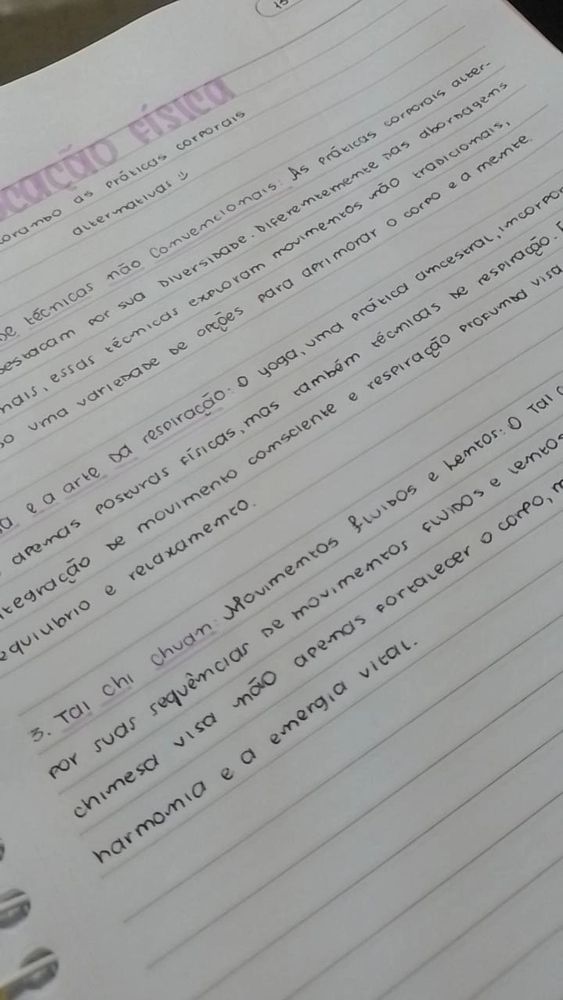 cação física
orando as práticas corporais
alternativas
de técnicas não convencionais: As práticas corporais alter-
destacam por sua diversidade. Diferentemente das abordagens
nais, essas técnicas exploram movimentos não tradicionais,
uma variedade de opções para aprimorar o corpo e a mente.
e a arte da respiração: O yoga, uma prática ancestral, incorpor
apenas posturas físicas, mas também técnicas de respiração.
ntegração de movimento consciente e respiração profunda visa
equilíbrio e relaxamento.
3. Tai chi chuan: Movimentos fluidos e Lentos: O Tai
por suas sequências de movimentos fluidos e lentos
chinesa visa não apenas fortalecer o corpo, m
harmonia e a energia vital.